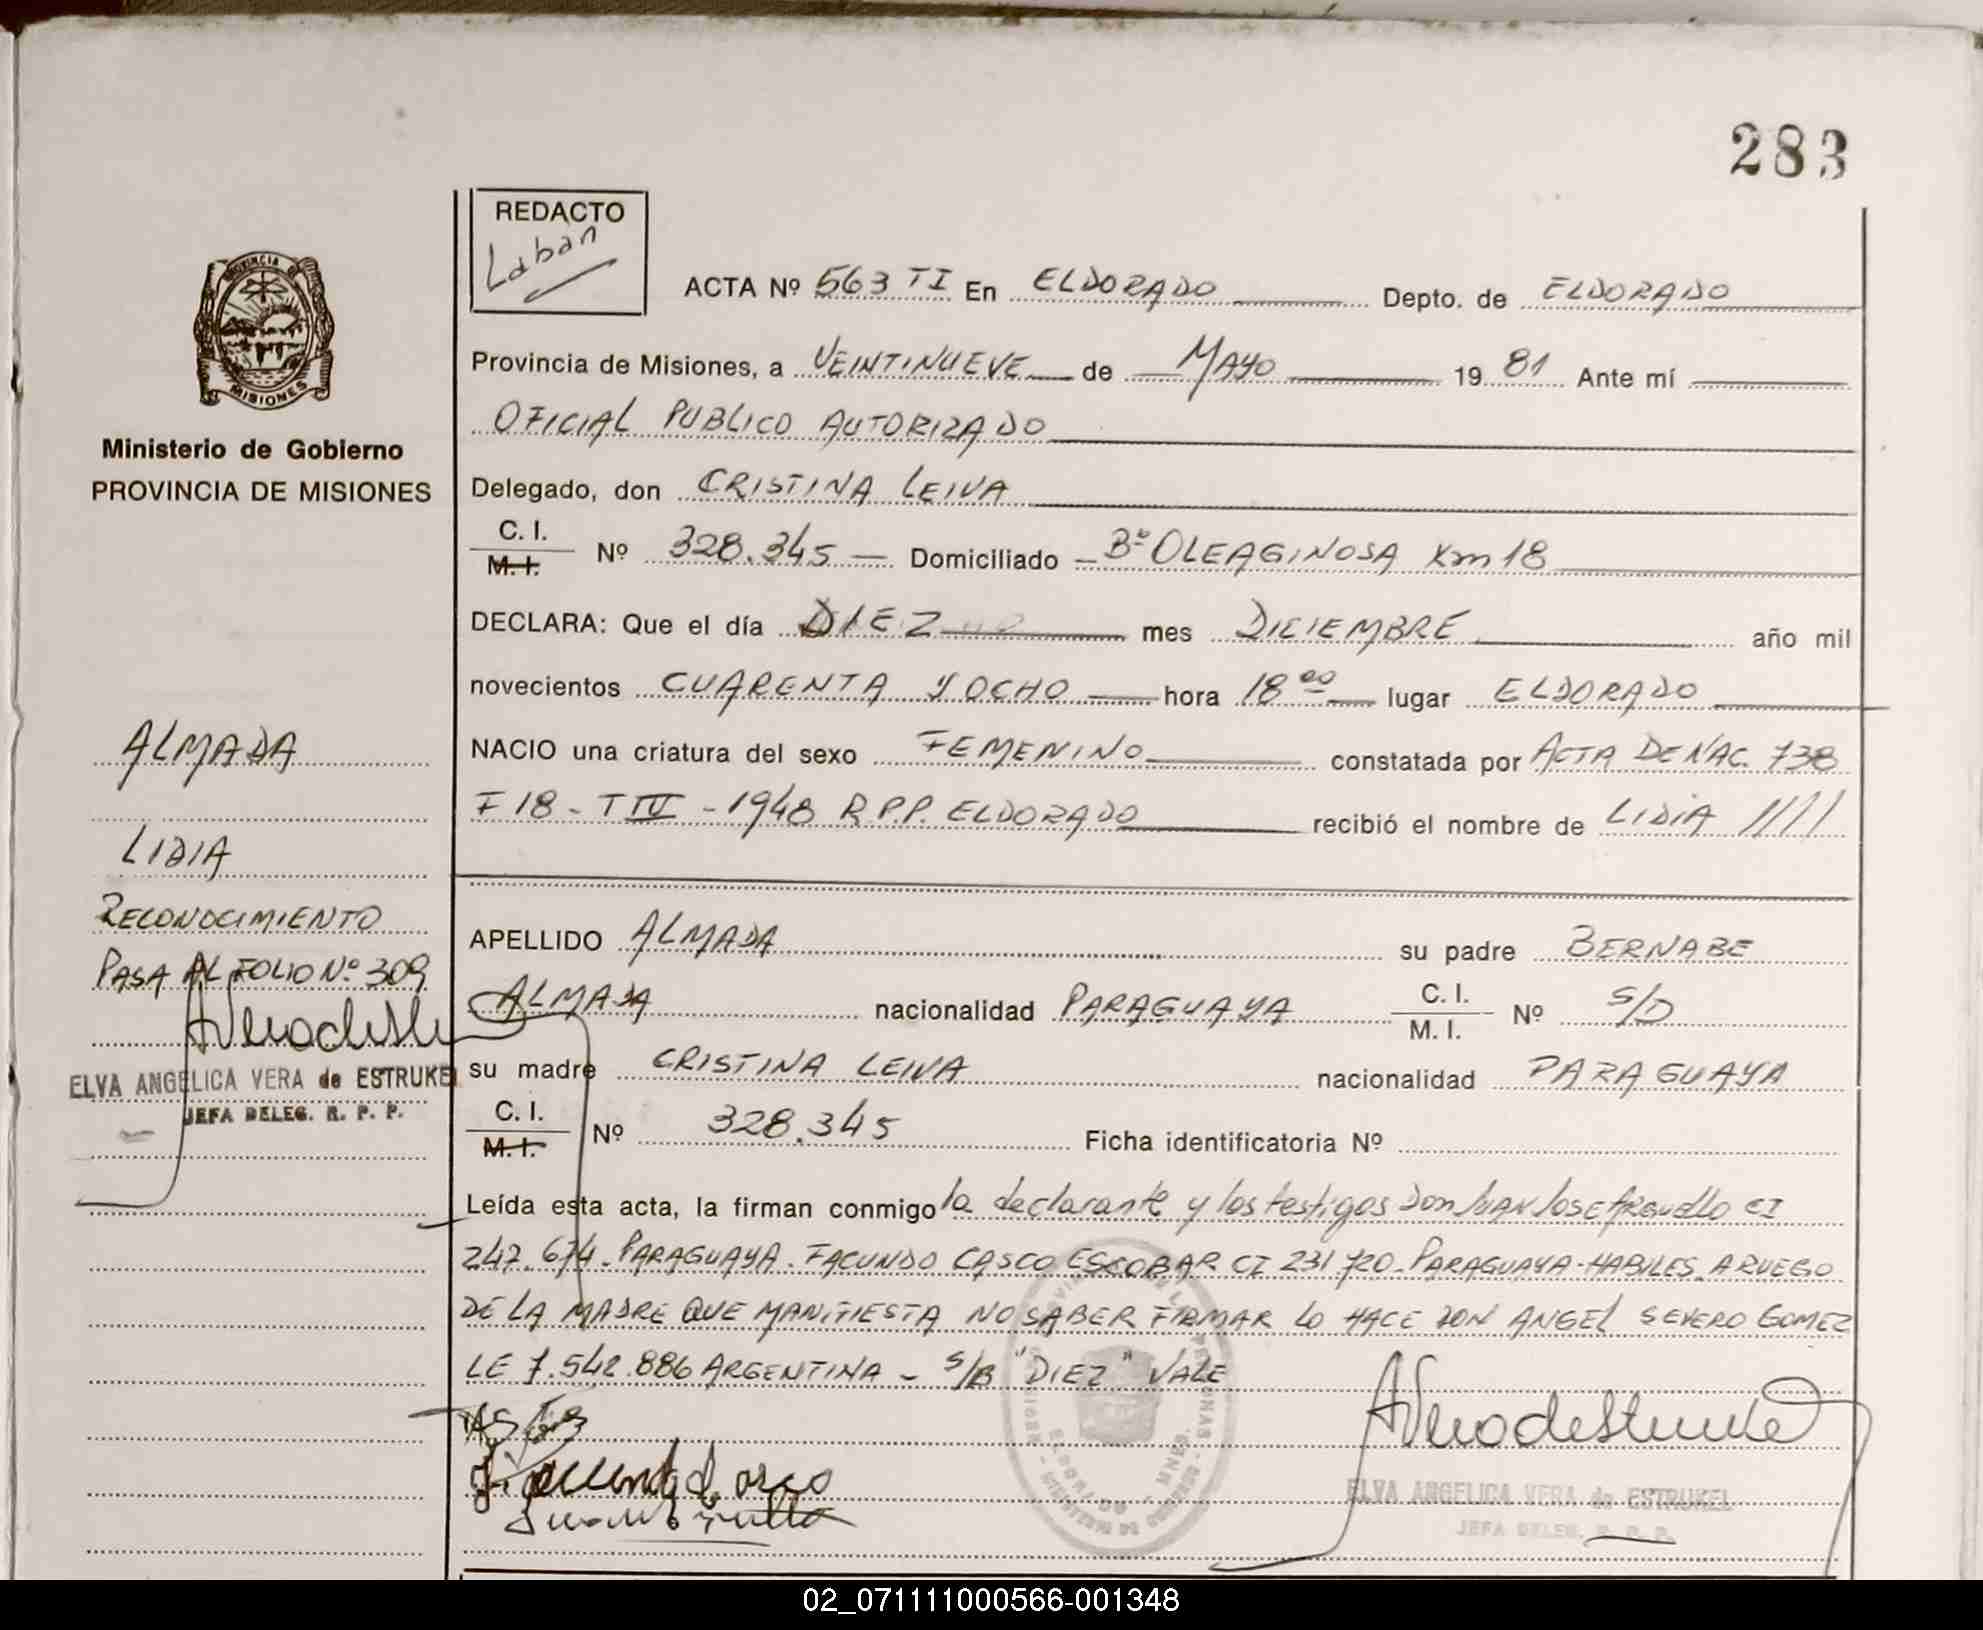 283
REDACTO
Laban
ACTA Nº 563 TI En ELDORADO Depto. de ELDORADO
Provincia de Misiones, a VEINTINUEVE de MAYO 19 81 Ante mí
OFICIAL PUBLICO AUTORIZADO
PROVINCIA DE
MISIONES
Ministerio de Gobierno
PROVINCIA DE MISIONES
Delegado, don CRISTINA LEIVA
C. I.
M. I. Nº 328.345 Domiciliado Bº OLEAGINOSA Km 18
DECLARA: Que el día DIEZ mes DICIEMBRE año mil
novecientos CUARENTA Y OCHO hora 18 00 lugar ELDORADO
NACIO una criatura del sexo FEMENINO constatada por ACTA DE NAC. 738
F 18 - T IV - 1948 R.P.P. ELDORADO recibió el nombre de LIDIA ////
ALMADA
LIDIA
RECONOCIMIENTO
PASA AL FOLIO Nº 309
ELVA ANGELICA VERA de ESTRUKEL
JEFA DELEG. R. P. P.
APELLIDO ALMADA su padre BERNABE
ALMADA nacionalidad PARAGUAYA C. I.
M. I. Nº S/D
su madre CRISTINA LEIVA nacionalidad PARAGUAYA
C. I.
M. I. Nº 328.345 Ficha identificatoria Nº
Leída esta acta, la firman conmigo la declarante y los testigos Don JUAN JOSE ARGUELLO CI
247.674. PARAGUAYA. FACUNDO CASCO ESCOBAR CI 231 720 PARAGUAYA. HABILES. A RUEGO
DE LA MADRE QUE MANIFIESTA NO SABER FIRMAR LO HACE DON ANGEL SEVERO GOMEZ
LE 7.542.886 ARGENTINA - S/B "DIEZ" VALE
ELVA ANGELICA VERA de ESTRUKEL
JEFA DELEG. R. P. P.
02_071111000566-001348